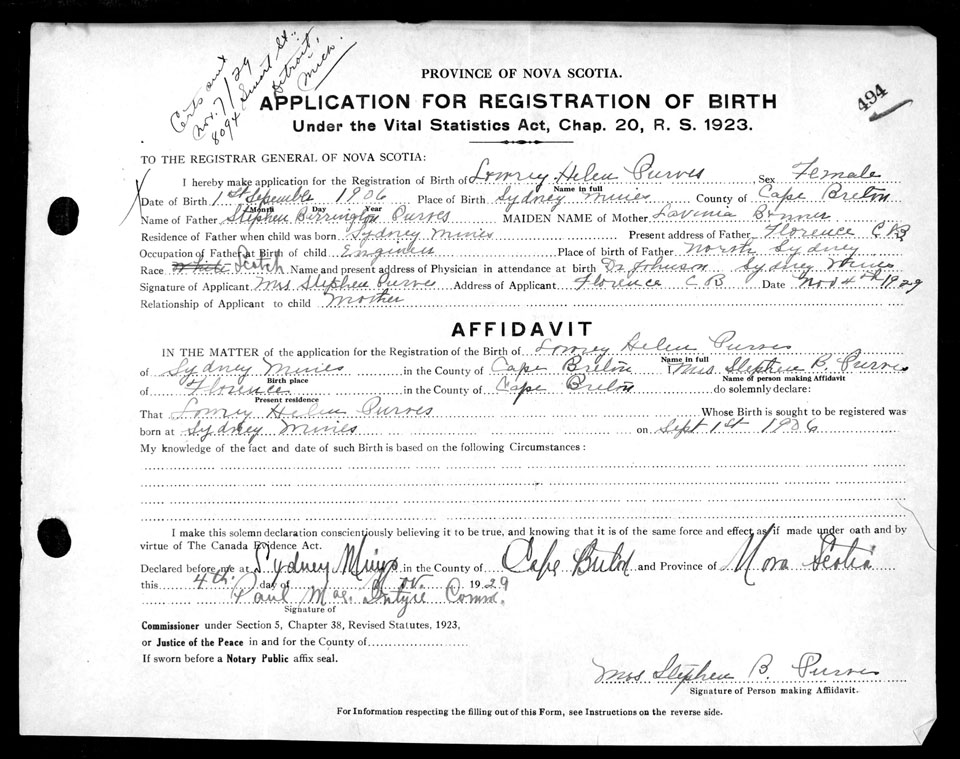 Certs sent
Nov. 7/29
8094 St.
Detroit,
Mich.
494
PROVINCE OF NOVA SCOTIA.
APPLICATION FOR REGISTRATION OF BIRTH
Under the Vital Statistics Act, Chap. 20, R. S. 1923.
TO THE REGISTRAR GENERAL OF NOVA SCOTIA:
I hereby make application for the Registration of Birth of Lowrey Helen Purves Sex Female
Name in full
Date of Birth 1st September 1906 Place of Birth Sydney Mines County of Cape Breton
Month Day Year
Name of Father Stephen Purves MAIDEN NAME of Mother Lavinia Bonner
Residence of Father when child was born Sydney Mines Present address of Father Florence C B
Occupation of Father at Birth of child Engineer Place of birth of Father North Sydney
Race White Scotch Name and present address of Physician in attendance at birth Dr Johnson Sydney Mines
Signature of Applicant Mrs Stephen Purves Address of Applicant Florence C B Date Nov 4th 1929
Relationship of Applicant to child Mother
AFFIDAVIT
IN THE MATTER of the application for the Registration of the Birth of Lowrey Helen Purves
Name in full
of Sydney Mines in the County of Cape Breton I Mrs Stephen B. Purves
Birth place Name of person making Affidavit
of Florence in the County of Cape Breton do solemnly declare:
Present residence
That Lowrey Helen Purves Whose Birth is sought to be registered was
born at Sydney Mines on Sept 1st 1906
My knowledge of the fact and date of such Birth is based on the following Circumstances:
I make this solemn declaration conscientiously believing it to be true, and knowing that it is of the same force and effect as if made under oath and by
virtue of The Canada Evidence Act.
Declared before me at Sydney Mines in the County of Cape Breton and Province of Nova Scotia
this 4th. day of Nov. 1929
Paul Mac Intyre Comm.
Signature of
Commissioner under Section 5, Chapter 38, Revised Statutes, 1923,
or Justice of the Peace in and for the County of
If sworn before a Notary Public affix seal.
Mrs. Stephen B. Purves
Signature of Person making Affidavit.
For Information respecting the filling out of this Form, see Instructions on the reverse side.